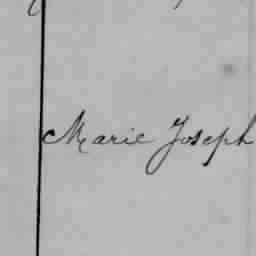 Marie Joseph